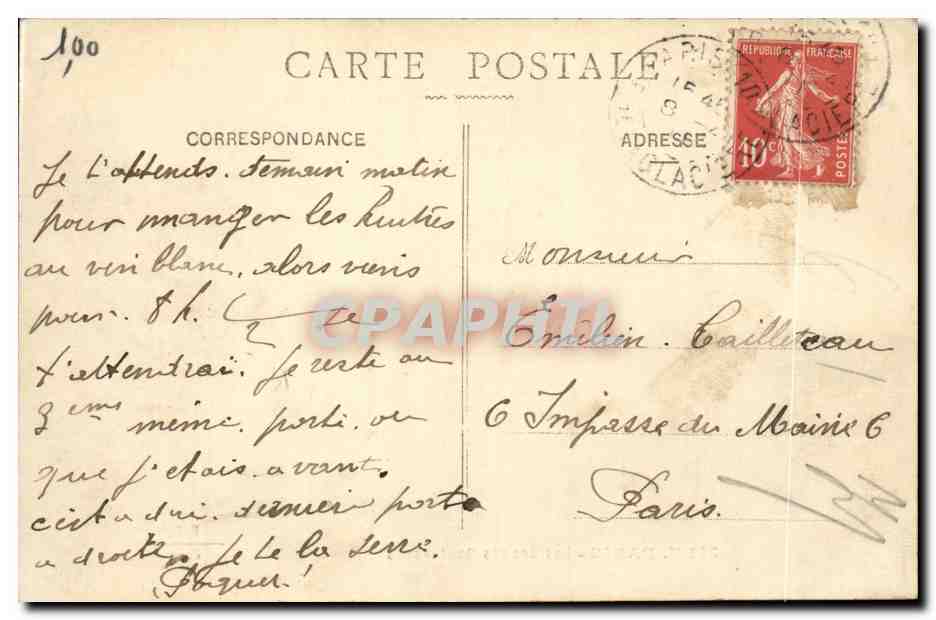 1,00
CARTE POSTALE
CORRESPONDANCE
ADRESSE
REPUBLIQUE FRANÇAISE
10c
POSTES
PARIS
15 45
8
GLACIERE
Je t'attends demain matin
pour manger les huitres
au vin blanc, alors viens
pour 8 h. Je
t'attendrai. Je reste au
3eme même porte ou
que j'etais avant.
c'est a dire derniere porte
a droite, Je te la serre.
Monsieur
Emilien Cailleteau
6 Impasse du Maine 6
Paris.
CPAPHIL